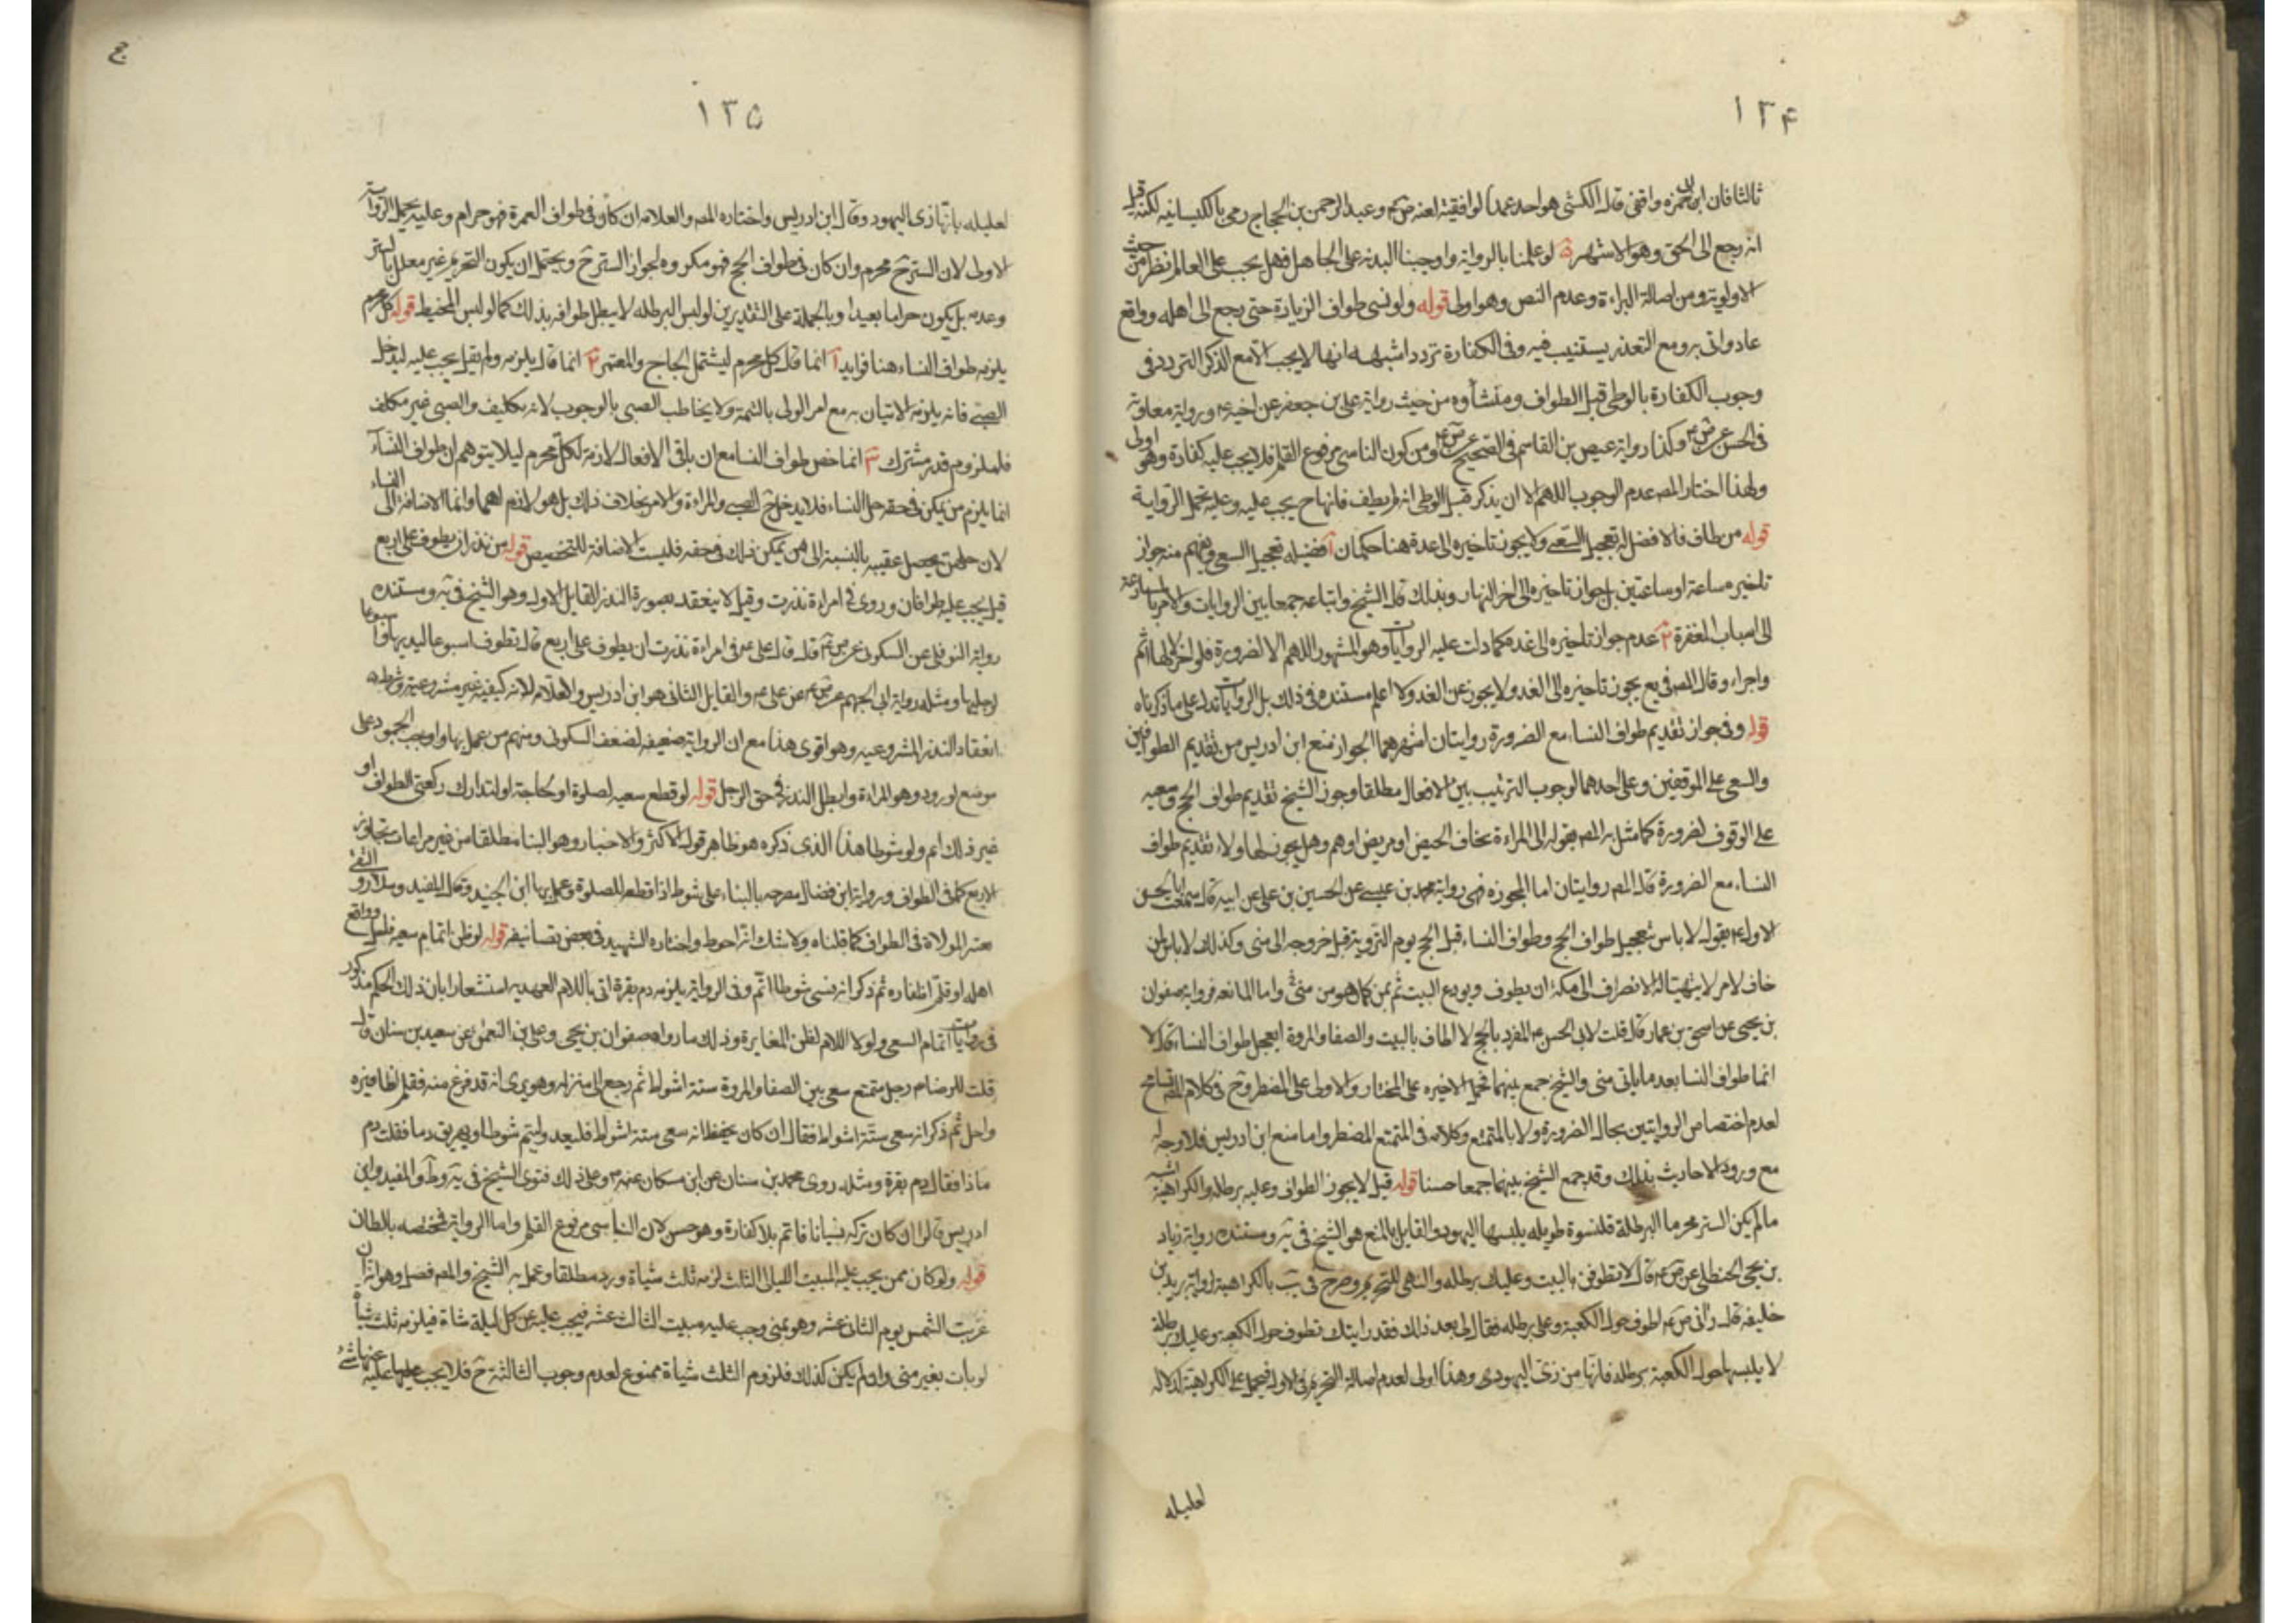 ۱۳۴
ثالثا فان ابن ابى حمزه واقفى قال الكشى هو احد عمد الواقفية لعنه ض ع وعبد الرحمن بن الحجاج رمى بالكيسانيه لكنه قيل
انه رجع الى الحق وهو الاشهر ۵ لو علمنا بالرواية واوجبنا البدنه على الجاهل فهل يجب على العالم نظر من حيث
الاولوية ومن اصالة البراءة وعدم النص وهو اولى قوله ولو نسى طواف الزيارة حتى رجع الى اهله وواقع
عاد واتى به ومع التعذر يستنيب فيه وفى الكفارة تردد اشبهه انها لا يجب الا مع الذكر التردد فى
وجوب الكفارة بالوطى قبل الطواف ومنشأوه من حيث رواية على بن جعفر عن اخيه ع ورواية معاوية
فى الحسن عن ص ع وكذا رواية عيص بن القاسم فى الصحيح عن ص ع ومن كون الناسى مرفوع القلم فلا يجب عليه كفارة وهو اولى
ولهذا اختار المص عدم الوجوب اللهم الا ان يذكر قبل الوطى انه لم يطف فانها ح يجب عليه وعليه تحمل الرواية
قوله من طاف فالافضل له تعجيل السعى ولا يجوز تاخيره الى غده هنا حكمان ا افضليه تعجيل السعى ويفهم منه جواز
تاخيره ساعة او ساعتين بل جواز تاخيره الى اخر النهار وبذلك قال الشيخ واتباعه جمعا بين الروايات والامر بالمسارعة
الى اسباب المغفرة ۲ عدم جواز تاخيره الى غده كما دلت عليه الروايات وهو المشهور اللهم الا لضرورة فلو اخر لا لها اثم
واجزاء وقال المص فى يع يجوز تاخيره الى الغد ولا يجوز عن الغد ولا اعلم مستنده فى ذلك بل الروايات تدل على ما ذكرناه
قوله وفى جواز تقديم طواف النساء مع الضرورة روايتان اشهرهما الجواز منع ابن ادريس من تقديم الطوافين
والسعى على الموقفين وعلى احدهما لوجوب الترتيب بين الافعال مطلقا وجوز الشيخ تقديم طواف الحج وسعيه
على الوقوف لضرورة كما مثل به المص بقوله الى المراءة بخاف الحيض او مريض او هم وهل يجوز لها ولاء تقديم طواف
النساء مع الضرورة قال المص روايتان اما المجوزه فهى رواية محمد بن عيسى عن الحسين بن على عن ابيه قال سمعت ابا الحسن
الاول ع يقول لا باس بتعجيل طواف الحج وطواف النساء قبل الحج يوم التروية قبل خروجه الى منى وكذلك لا باس لمن
خاف لامر لا يتهيّا له الانصراف الى مكة ان يطوف ويودع البيت ثم يمر كما هو من منى واما المانعه فرواية صفوان
بن يحيى عن اسحق بن عمار قال قلت لابى الحسن ع المفرد بالحج لا الطاف بالبيت والصفا والمروة ايعجل طواف النساء قال لا
انما طواف النسا بعد ما ياتى منى والشيخ جمع بينهما بحمل الاخيره على المختار والاولى على المضطر وح فى كلام المص تسامح
لعدم اختصاص الروايتين بحال الضرورة ولا بالمتمتع وكلامه فى المتمتع المضطر واما منع ابن ادريس فلا وجه له
مع ورود الاحاديث بذلك وقد جمع الشيخ بينهما جمعا حسنا قوله قيل لا يجوز الطواف وعليه برطله والكراهية اشبه
مالم يكن الستر محرما البرطلة قلنسوة طويله يلبسها اليهود والقايل بالمنع هو الشيخ فى يه ومستنده رواية زياد
بن يحيى الحنظلى عن ص ع قال لا تطوفن بالبيت وعليك برطله والنهى للتحريم وصرح فى يب بالكراهية لرواية يزيد بن
خليفه قال رانى ص ع اطوف حول الكعبة وعلى برطله فقال لى بعد ذلك فقد رايتك تطوف حول الكعبه وعليك برطلة
لا يلبسها حول الكعبة برطله فانها من زى اليهودى وهذا اولى لعدم اصالة التحريم فى الاولى فيحمل على الكراهية لدلالة
لعليله
۱۳۵
لعليله بانها زى اليهود وقال ابن ادريس واختاره المص والعلامه ان كان فى طواف العمرة فهو حرام وعليه يحمل الرواية
الاولى لان الستر ح محرم وان كان فى طواف الحج فهو مكروه لجواز الستر ح ويحتمل ان يكون التحريم غير معلل بالستر
وعدمه بل يكون حراما بعيدا وبالجملة على التقديرين لو لبس البرطله لا يبطل طوافه بذلك كما لو لبس المخيط قوله كل محرم
يلزمه طواف النساء هنا فوايد ا انما قال كل محرم ليشتمل الحاج والمعتمر ۲ انما قال يلزمه ولم يقل يجب عليه ليدخل
الصبى فانه يلزمه الاتيان به مع امر الولى بالتتمة ولا يخاطب الصبى بالوجوب لانه تكليف والصبى غير مكلف
فلملزوم قدر مشترك ۳ انما خص طواف النسا مع ان باقى الافعال لازمة لكل محرم ليلا يتوهم ان طواف النساء
انما يلزم من يمكن فى حقه حل النساء فلا يدخل ح الصبى والمراءة والامر بخلاف ذلك بل هو لازم لهما وانما الاضافة الى النساء
لان حلهن يحصل عقيبه بالنسبة الى من يمكن ذلك فى حقه فليست الاضافة للتخصيص قوله من نذر ان يطوف على اربع
قيل يجب عليه طوافان وروى فى امراءة نذرت وقيل لا ينعقد بصورة النذر القايل الاول وهو الشيخ فى يه ومستنده
رواية النوفلى عن السكونى عن ص ع قال قال على ع فى امراءة نذرت ان يطوف على اربع قال تطوف اسبوعا ليديها واسبوعا
لرجليها ومثله رواية ابى الجهم عن ص ع عن على ع والقايل الثانى هو ابن ادريس والعلامه لانه كيفيه غير مشروعية وشرط
انعقاد النذر المشروعيه وهو اقوى هذا مع ان الرواية ضعيفه لضعف السكونى ومنهم من عمل بها واوجب الجمود على
موضع لورود وهو المراءة وابطل النذر فى حق الرجل قوله لو قطع سعيه لصلوة او لحاجة او لتدارك ركعتى الطواف او
غير ذلك اتم ولو شوطا هذا الذى ذكره هو ظاهر قول الاكثر والاخبار وهو البنا مطلقا من غير مراعات تجاوز
الاربع كما فى الطواف ورواية ابن فضال مصرحه بالبناء على شوط اذا قطع للصلوة وعمل بها ابن الجنيد وقال المفيد وسلار و التقى
يعتبر الموالاة فى الطواف كما قلناه ولا شك انه احوط واختاره الشهيد فى بعض تصانيفه قوله لو ظن اتمام سعيه فاحل وواقع
اهله او قلم اظفاره ثم ذكر انه نسى شوطا اتم وفى الرواية يلزمه دم بقرة اتى باللام العهديه استشعارا بان ذلك الحكم مذكور
فى روايات اتمام السعى ولولا اللام لظن المغايرة وذلك ما رواه صفوان بن يحيى وعلى بن النعمن عن سعيد بن سنان قال
قلت للرضا م رجل متمتع سعى بين الصفا والمروة ستة اشواط ثم رجع الى منزله وهو يرى انه قد فرغ منه فقلم اظافيره
واحل ثم ذكر انه سعى ستّة اشواط فقال ان كان يحفظ انه سعى ستة اشواط فليعد وليتم شوطا ويهريق دما فقلت دم
ماذا فقال دم بقرة ومثله روى محمد بن سنان عن ابن مسكان عنه ع وعلى ذلك فتوى الشيخ فى يه وط والمفيد وابن
ادريس قالوا ان كان تركه نسيانا فاتم بلا كفارة وهو حسن لان الناسى مرفوع القلم واما الرواية فمختصه بالظان
قوله ولو كان ممن يجب عليه المبيت الليلى الثلث لزمه ثلث شياة ورد مطلقا وعمل به الشيخ والمص فصل وهو انه ان
غربت الشمس يوم الثانى عشر وهو بمنى وجب عليه مبيت الثالث عشر فيجب عليه عن كل ليلة شاة فيلزمه ثلث شياه
لو بات بغير منى وان لم يكن كذلك فلزوم الثلث شياة ممنوع لعدم وجوب الثالثة ح فلا يجب عليه عنها شئ